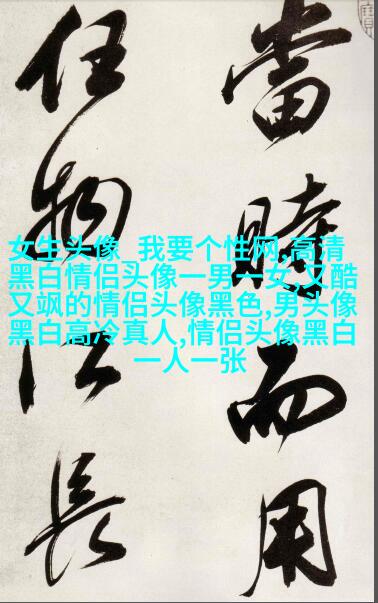 當時而用
任物以長
女生头像_我要个性网,高清
黑白情侣头像一男一女,又酷
又飒的情侣头像黑色,男头像
黑白高冷真人,情侣头像黑白
一人一张